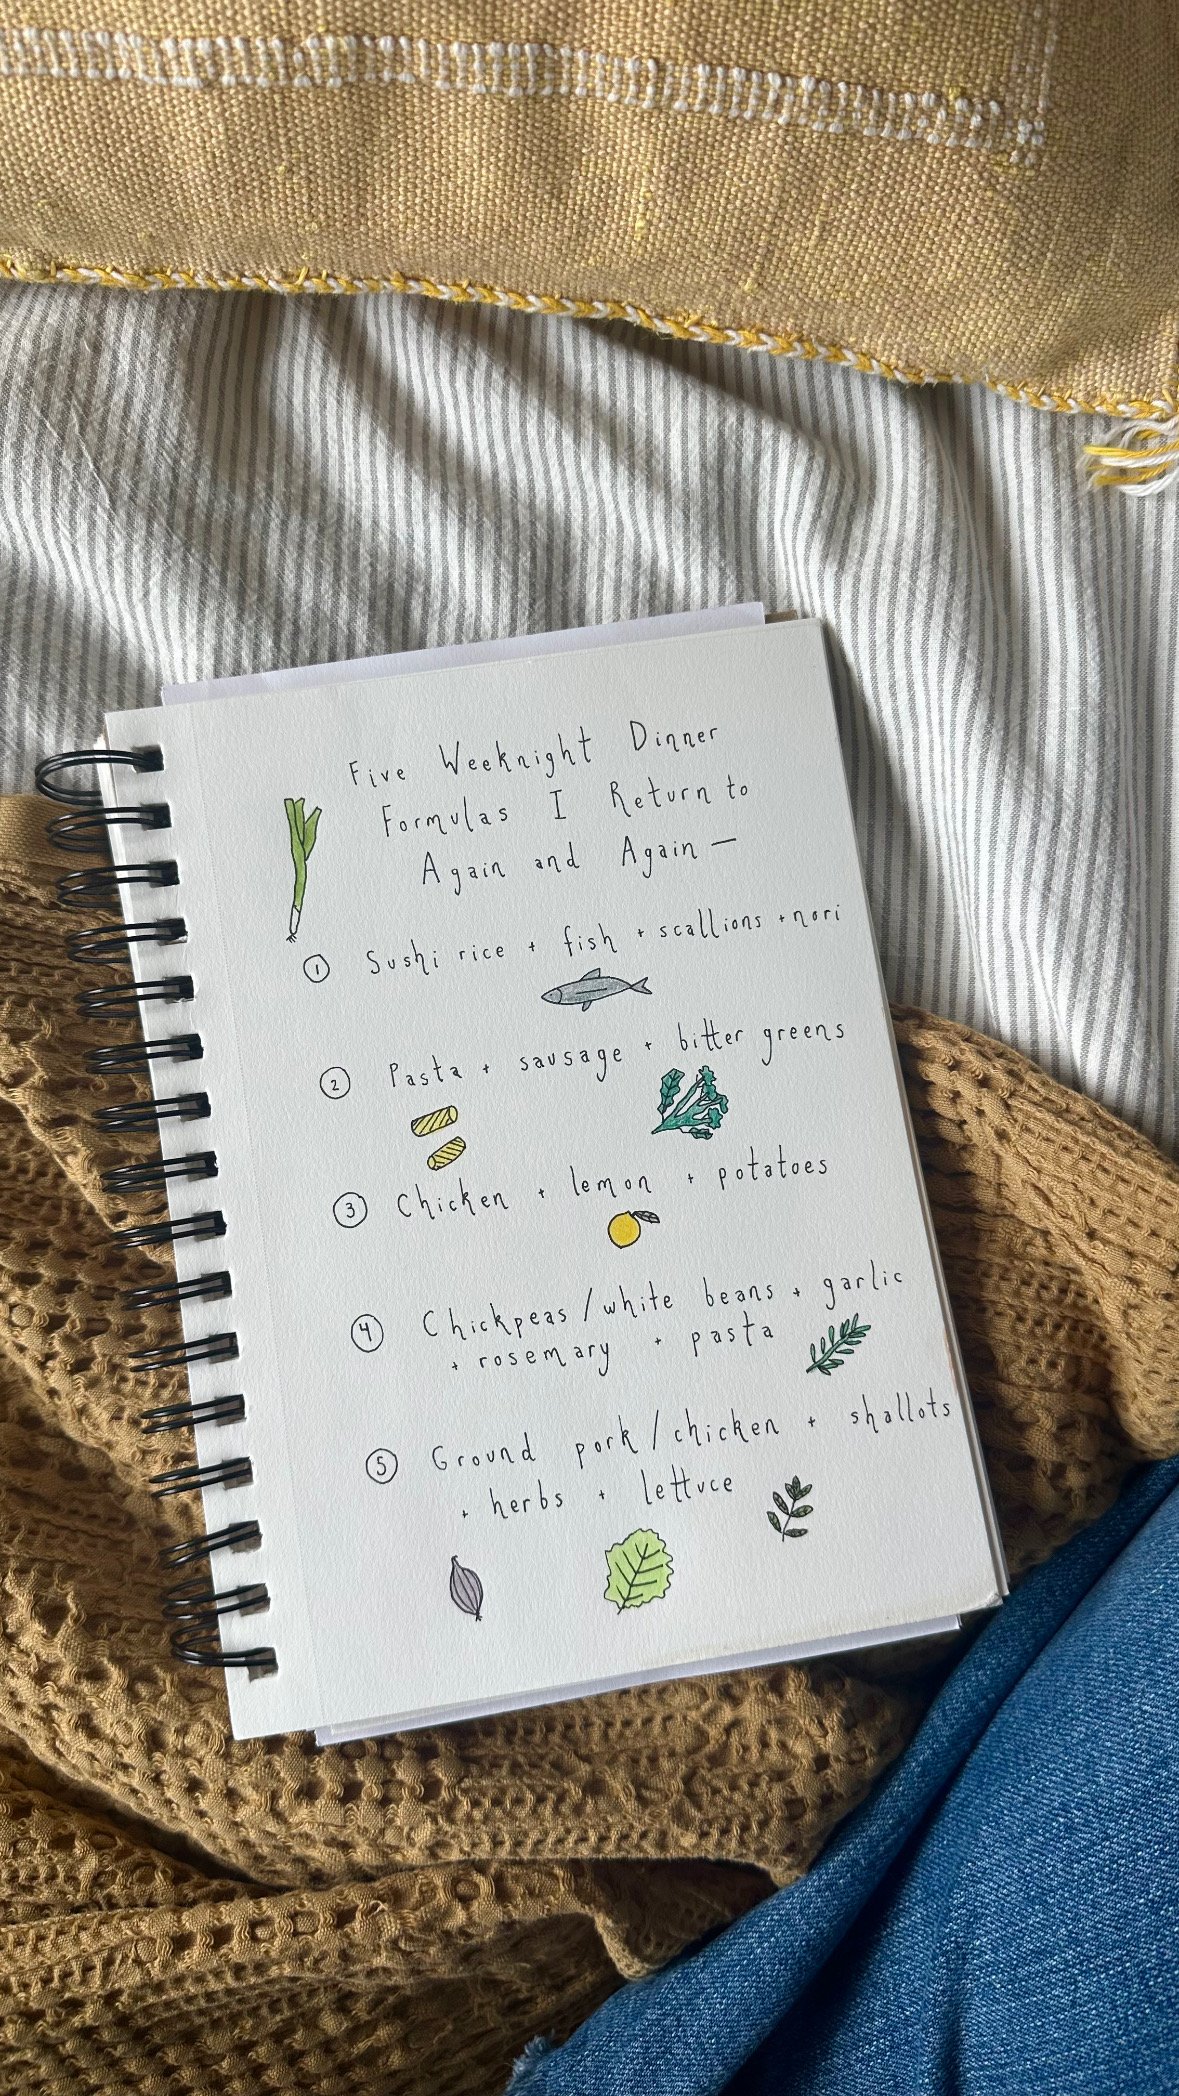 Five Weeknight Dinner
Formulas I Return to
Again and Again —
1 Sushi rice + fish + scallions + nori
2 Pasta + sausage + bitter greens
3 Chicken + lemon + potatoes
4 Chickpeas/white beans + garlic
+ rosemary + pasta
5 Ground pork/chicken + shallots
+ herbs + lettuce